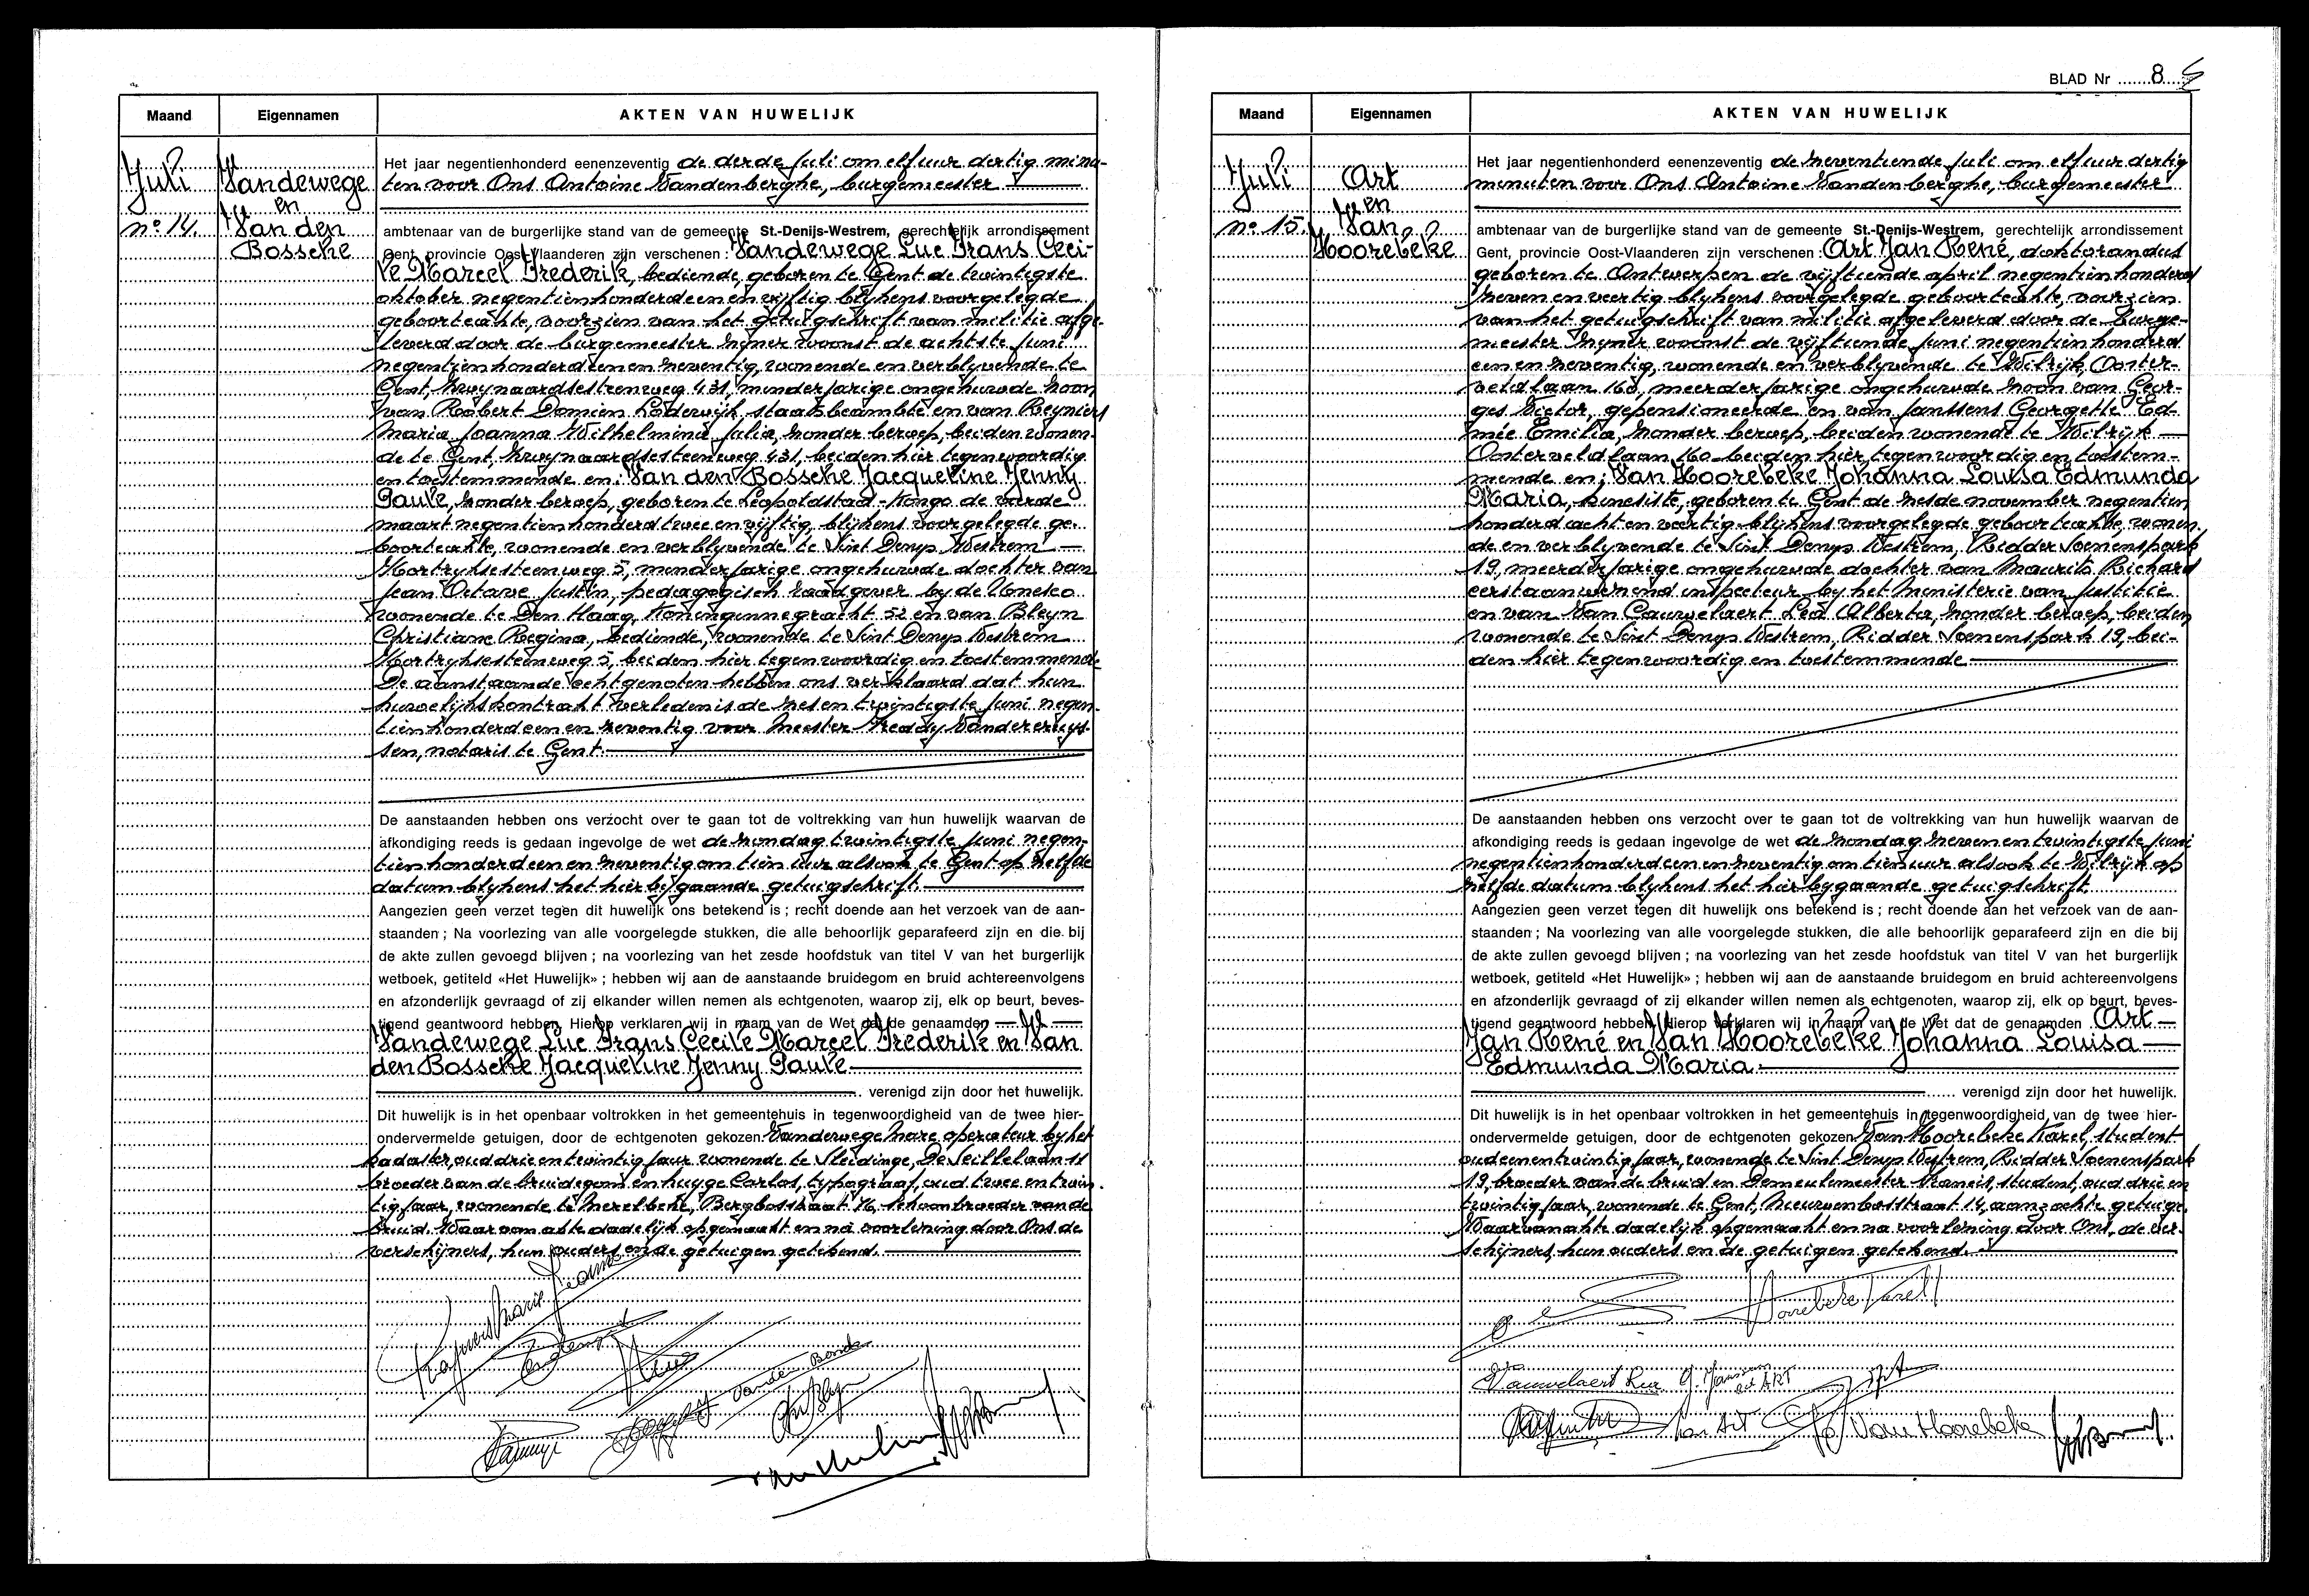 Maand
Eigennamen
AKTEN VAN HUWELIJK
Juli
nº 14.
Vandewege
en
Van den
Bossche
Het jaar negentienhonderd eenenzeventig de derde juli om elf uur dertig minu-
ten voor Ons Antoine Vandenberghe, burgemeester
ambtenaar van de burgerlijke stand van de gemeente St.-Denijs-Westrem, gerechtelijk arrondissement
Gent, provincie Oost-Vlaanderen zijn verschenen : Vandewege Luc Frans Ceci-
le Marcel Frederik, bediende, geboren te Gent de twintigste
oktober negentienhonderdeenenvijftig blijkens voorgelegde
geboorteakte, voorzien van het getuigschrift van militie afge-
leverd door de burgemeester zijner woonst de achtste juni
negentienhonderdeenenzeventig, wonende en verblyvende te
Gent, Zwynaardsesteenweg 431, minderjarige ongehuwde zoon
van Robert Damien Lodewijk, staatsbeambte en van Reyniers
Maria Joanna Wilhelmina Julia, zonder beroep, beiden wonen-
de te Gent, Zwynaardsesteenweg 431, beiden hier tegenwoordig
en toestemmende en: Van den Bossche Jacqueline Jenny
Paule, zonder beroep, geboren te Leopoldstad-Kongo de vierde
maart negentienhonderd twee en vijftig, blijkens voorgelegde ge-
boorteakte, wonende en verblyvende te Sint Denys Westrem
Kortryksesteenweg 5, minderjarige ongehuwde dochter van
Jean Octave Justin, pedagogisch raadgever by de Unesco
wonende te Den Haag, Koninginnegracht 52 en van Bleyn
Christiane Regina, bediende, wonende te Sint Denys Westrem
Kortryksesteenweg 5, beiden hier tegenwoordig en toestemmend-
De aanstaande echtgenoten hebben ons verklaard dat hun
huwelijkskontrakt verleden is de zesentwintigste juni negen-
tienhonderdeenenzeventig voor Meester Freddy Vandercruys-
sen, notaris te Gent.
De aanstaanden hebben ons verzocht over te gaan tot de voltrekking van hun huwelijk waarvan de
afkondiging reeds is gedaan ingevolge de wet de zondag twintigste juni negen-
tienhonderdeenenzeventig om tien uur alsook te Gent op zelfde
datum blykens het hier bijgaande getuigschrift.
Aangezien geen verzet tegen dit huwelijk ons betekend is ; recht doende aan het verzoek van de aan-
staanden ; Na voorlezing van alle voorgelegde stukken, die alle behoorlijk geparafeerd zijn en die bij
de akte zullen gevoegd blijven ; na voorlezing van het zesde hoofdstuk van titel V van het burgerlijk
wetboek, getiteld «Het Huwelijk» ; hebben wij aan de aanstaande bruidegom en bruid achtereenvolgens
en afzonderlijk gevraagd of zij elkander willen nemen als echtgenoten, waarop zij, elk op beurt, beves-
tigend geantwoord hebben. Hierop verklaren wij in naam van de Wet dat de genaamden
Vandewege Luc Frans Cecile Marcel Frederik en Van
den Bossche Jacqueline Jenny Paule
verenigd zijn door het huwelijk.
Dit huwelijk is in het openbaar voltrokken in het gemeentehuis in tegenwoordigheid van de twee hier-
ondervermelde getuigen, door de echtgenoten gekozen Vandewege Marc operateur by het
kadaster, oud drieentwintig jaar wonende te Sleidinge, De Seillelaan 11
broeder van de bruidegom en Huyge Carlos, typograaf, oud twee en twin-
tig jaar, wonende te Merelbeke, Bergbosstraat 76 schoonbroeder van de
bruid. Waarvan akte dadelijk opgemaakt en na voorlezing door Ons de
verschijners, hun ouders en de getuigen getekend.
BLAD Nr 8
Maand
Eigennamen
AKTEN VAN HUWELIJK
Juli
nº 15.
Art
en
Van
Hoorebeke
Het jaar negentienhonderd eenenzeventig de zeventiende juli om elf uur dertig
minuten voor Ons Antoine Vandenberghe, burgemeester
ambtenaar van de burgerlijke stand van de gemeente St.-Denijs-Westrem, gerechtelijk arrondissement
Gent, provincie Oost-Vlaanderen zijn verschenen : Art Jan René, doktorandus
geboren te Antwerpen de vijftiende april negentienhonderd
zeven en veertig blykens voorgelegde geboorteakte, voorzien
van het getuigschrift van militie afgeleverd door de burge-
meester zijner woonst de vijftiende juni negentienhonderd
eenenzeventig, wonende en verblyvende te Wilrijk, Ooster-
veldlaan 160, meerderjarige ongehuwde zoon van Geor-
ges Victor, gepensioneerde en van Janssens Georgette Ed-
mée Emilia, zonder beroep, beiden wonende te Wilrijk
Oosterveldlaan 160 beiden hier tegenwoordig en toestem-
mende en: Van Hoorebeke Johanna Louisa Edmunda
Maria, kinesiste, geboren te Gent de zesde november negentien
honderd acht en veertig blijkens voorgelegde geboorteakte, wonen-
de en verblyvende te Sint Denys Westrem, Ridder Soenenspark
19, meerderjarige ongehuwde dochter van Maurits Richard
eerstaanwezend inspecteur by het Ministerie van Justitie
en van Van Cauwelaert Lea Alberta, zonder beroep, beiden
wonende te Sint Denys Westrem, Ridder Soenenspark 19, bei-
den hier tegenwoordig en toestemmende
De aanstaanden hebben ons verzocht over te gaan tot de voltrekking van hun huwelijk waarvan de
afkondiging reeds is gedaan ingevolge de wet de zondag zevenentwintigste juni
negentienhonderdeenenzeventig om tien uur alsook te Wilrijk op
zelfde datum blykens het hier bygaande getuigschrift
Aangezien geen verzet tegen dit huwelijk ons betekend is ; recht doende aan het verzoek van de aan-
staanden ; Na voorlezing van alle voorgelegde stukken, die alle behoorlijk geparafeerd zijn en die bij
de akte zullen gevoegd blijven ; na voorlezing van het zesde hoofdstuk van titel V van het burgerlijk
wetboek, getiteld «Het Huwelijk» ; hebben wij aan de aanstaande bruidegom en bruid achtereenvolgens
en afzonderlijk gevraagd of zij elkander willen nemen als echtgenoten, waarop zij, elk op beurt, beves-
tigend geantwoord hebben. Hierop verklaren wij in naam van de Wet dat de genaamden Art
Jan René en Van Hoorebeke Johanna Louisa
Edmunda Maria
verenigd zijn door het huwelijk.
Dit huwelijk is in het openbaar voltrokken in het gemeentehuis in tegenwoordigheid van de twee hier-
ondervermelde getuigen, door de echtgenoten gekozen Van Hoorebeke Karel, student
oud eenentwintig jaar, wonende te Sint Denys Westrem, Ridder Soenenspark
19, broeder van de bruid en Demeulemeester Francis, student, oud drie en
twintig jaar, wonende te Gent, Nieuwenbosstraat 14, aanzochte getuige.
Waarvan akte dadelijk opgemaakt en na voorlezing door Ons, de ver-
schijners, hun ouders en de getuigen getekend.
Hoorebeke Karel
G. Janssens
ect ART
Jan Art
Van Hoorebeke